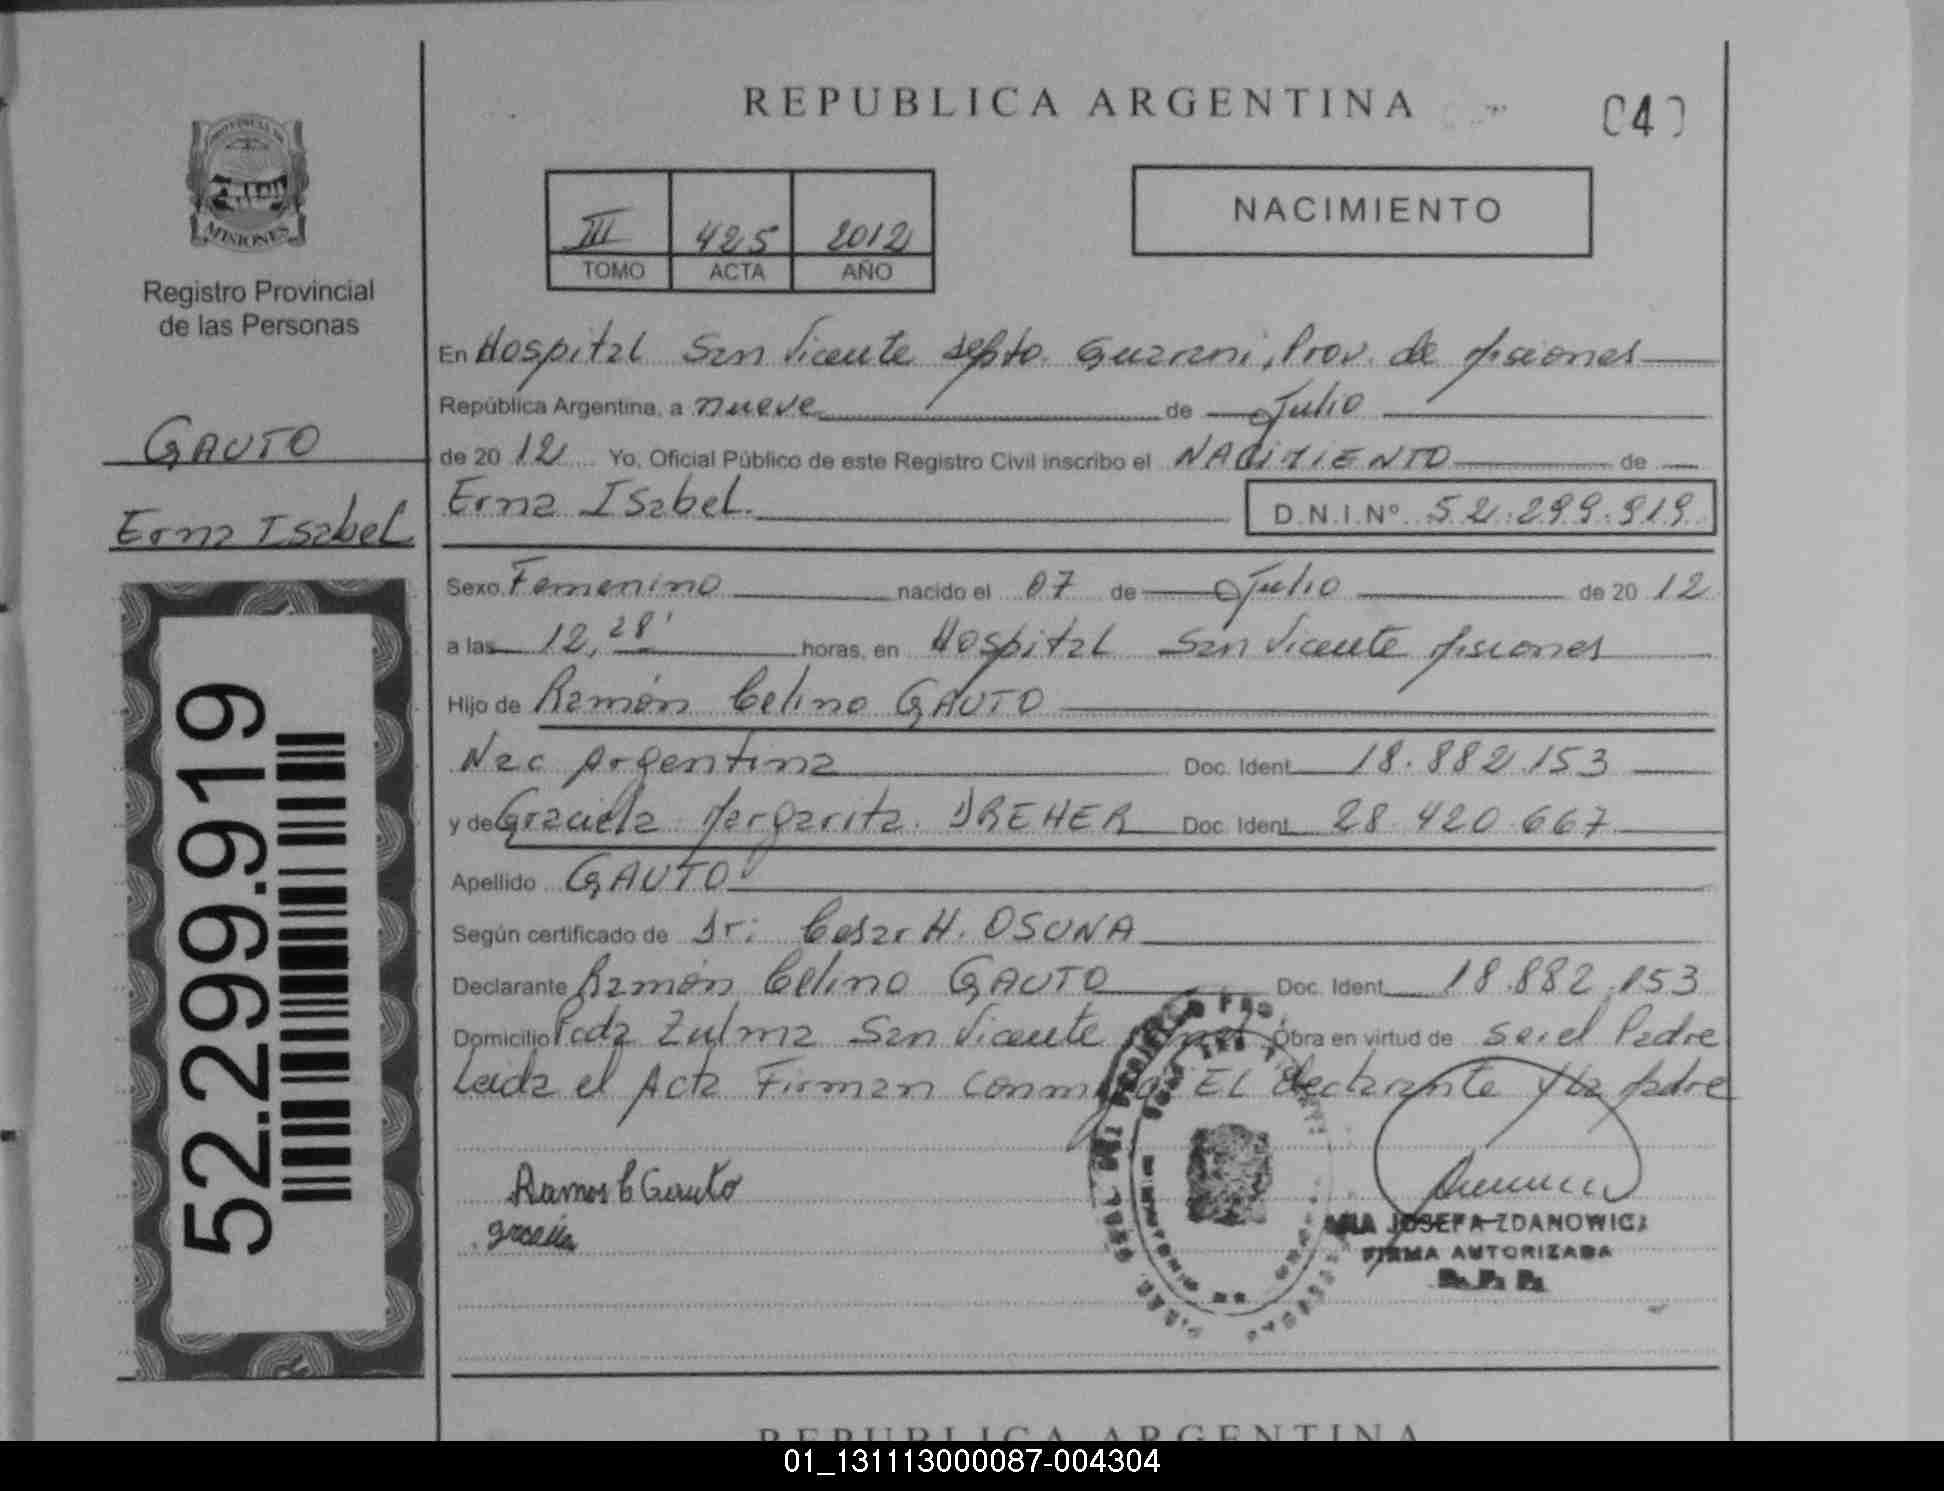 REPUBLICA ARGENTINA
04
NACIMIENTO
III 425 2012
TOMO ACTA AÑO
PROVINCIA DE
MISIONES
Registro Provincial
de las Personas
GAUTO
Erna Isabel
52.299.919
En Hospital San Vicente Depto. Guarani, Prov. de Misiones
República Argentina, a nueve de Julio
de 20 12 Yo, Oficial Público de este Registro Civil inscribo el NACIMIENTO de
Erna Isabel. D.N.I.Nº 52.299.919
Sexo Femenino nacido el 07 de Julio de 20 12
a las 12,28' horas, en Hospital San Vicente Misiones
Hijo de Ramón Celino GAUTO
Nac Argentina Doc. Ident. 18.882.153
y de Graciela Margarita DREHER Doc. Ident. 28.420.667
Apellido GAUTO
Según certificado de Dr: Cesar H. OSUNA
Declarante Ramón Celino GAUTO Doc. Ident. 18.882.153
Domicilio Pcda Zulma San Vicente Obra en virtud de ser el Padre
Leida el Acta Firman conmigo EL declarante y la Madre
Ramos C Gauto
JOSEFA ZDANOWICZ
FIRMA AUTORIZADA
REPUBLICA ARGENTINA
01_131113000087-004304